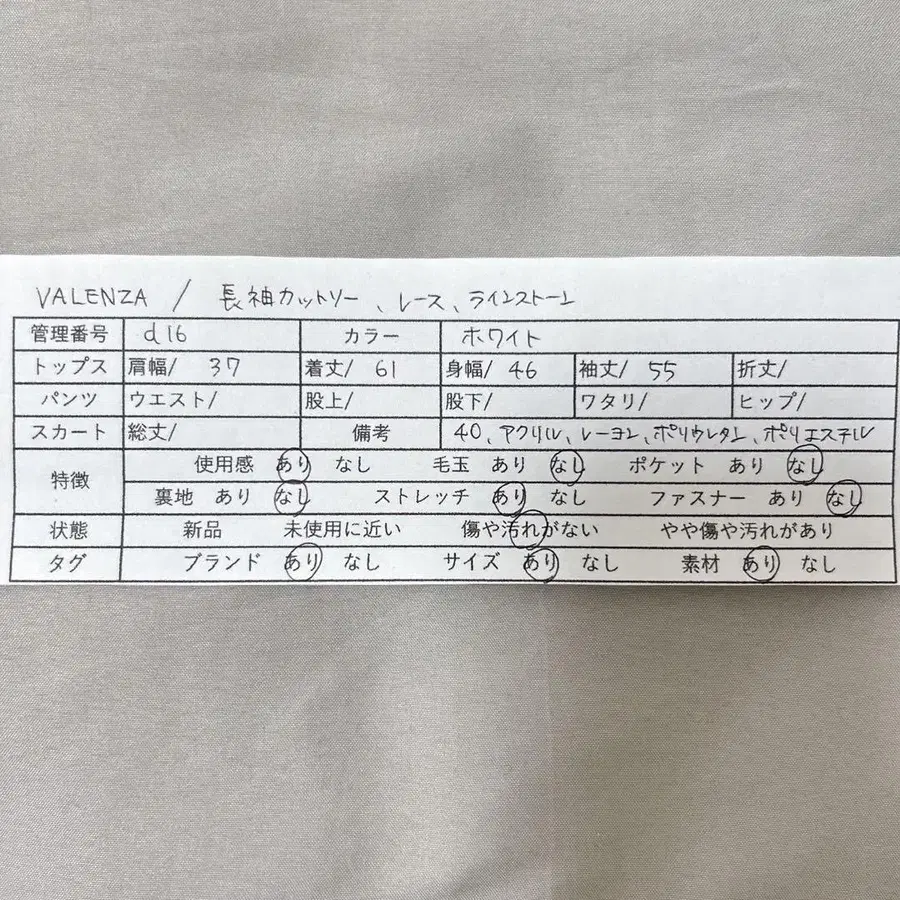 VALENZA / 長袖カットソー、レース、ラインストーン
管理番号 d16 カラー ホワイト
トップス 肩幅/ 37 着丈/ 61 身幅/ 46 袖丈/ 55 折丈/
パンツ ウエスト/ 股上/ 股下/ ワタリ/ ヒップ/
スカート 総丈/ 備考 40、アクリル、レーヨン、ポリウレタン、ポリエステル
特徴 使用感 あり なし 毛玉 あり なし ポケット あり なし
裏地 あり なし ストレッチ あり なし ファスナー あり なし
状態 新品 未使用に近い 傷や汚れがない やや傷や汚れがあり
タグ ブランド あり なし サイズ あり なし 素材 あり なし